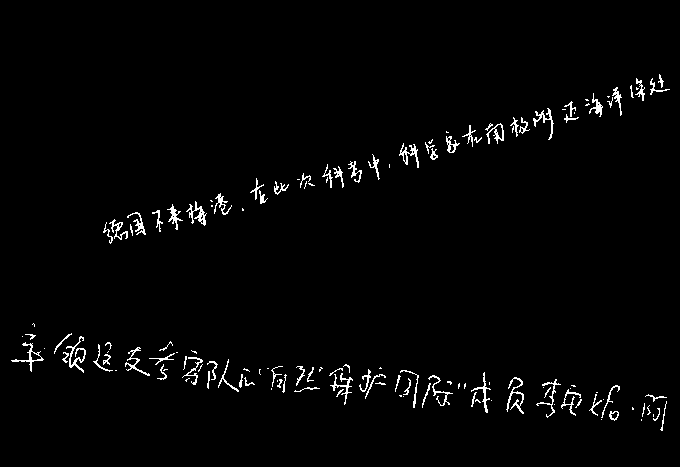 德国不来梅港。在此次科考中,科学家在南极附近海洋深处
率领这支考察队的“自然保护国际”成员李奥纳·阿